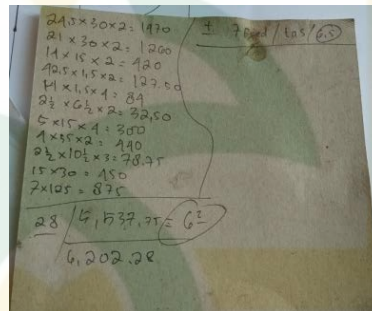 24,5×30×2=1470
21×30×2=1260
14×15×2=420
42,5×1,5×2=127.50
14×1,5×4=84
2½×6½×2=32,50
5×15×4=300
4×55×2=440
2½×10½×3=78.75
15×30=450
7×125=875
28 /5,537,75= 6²
6,202.28
± 7 / tas / 6,5